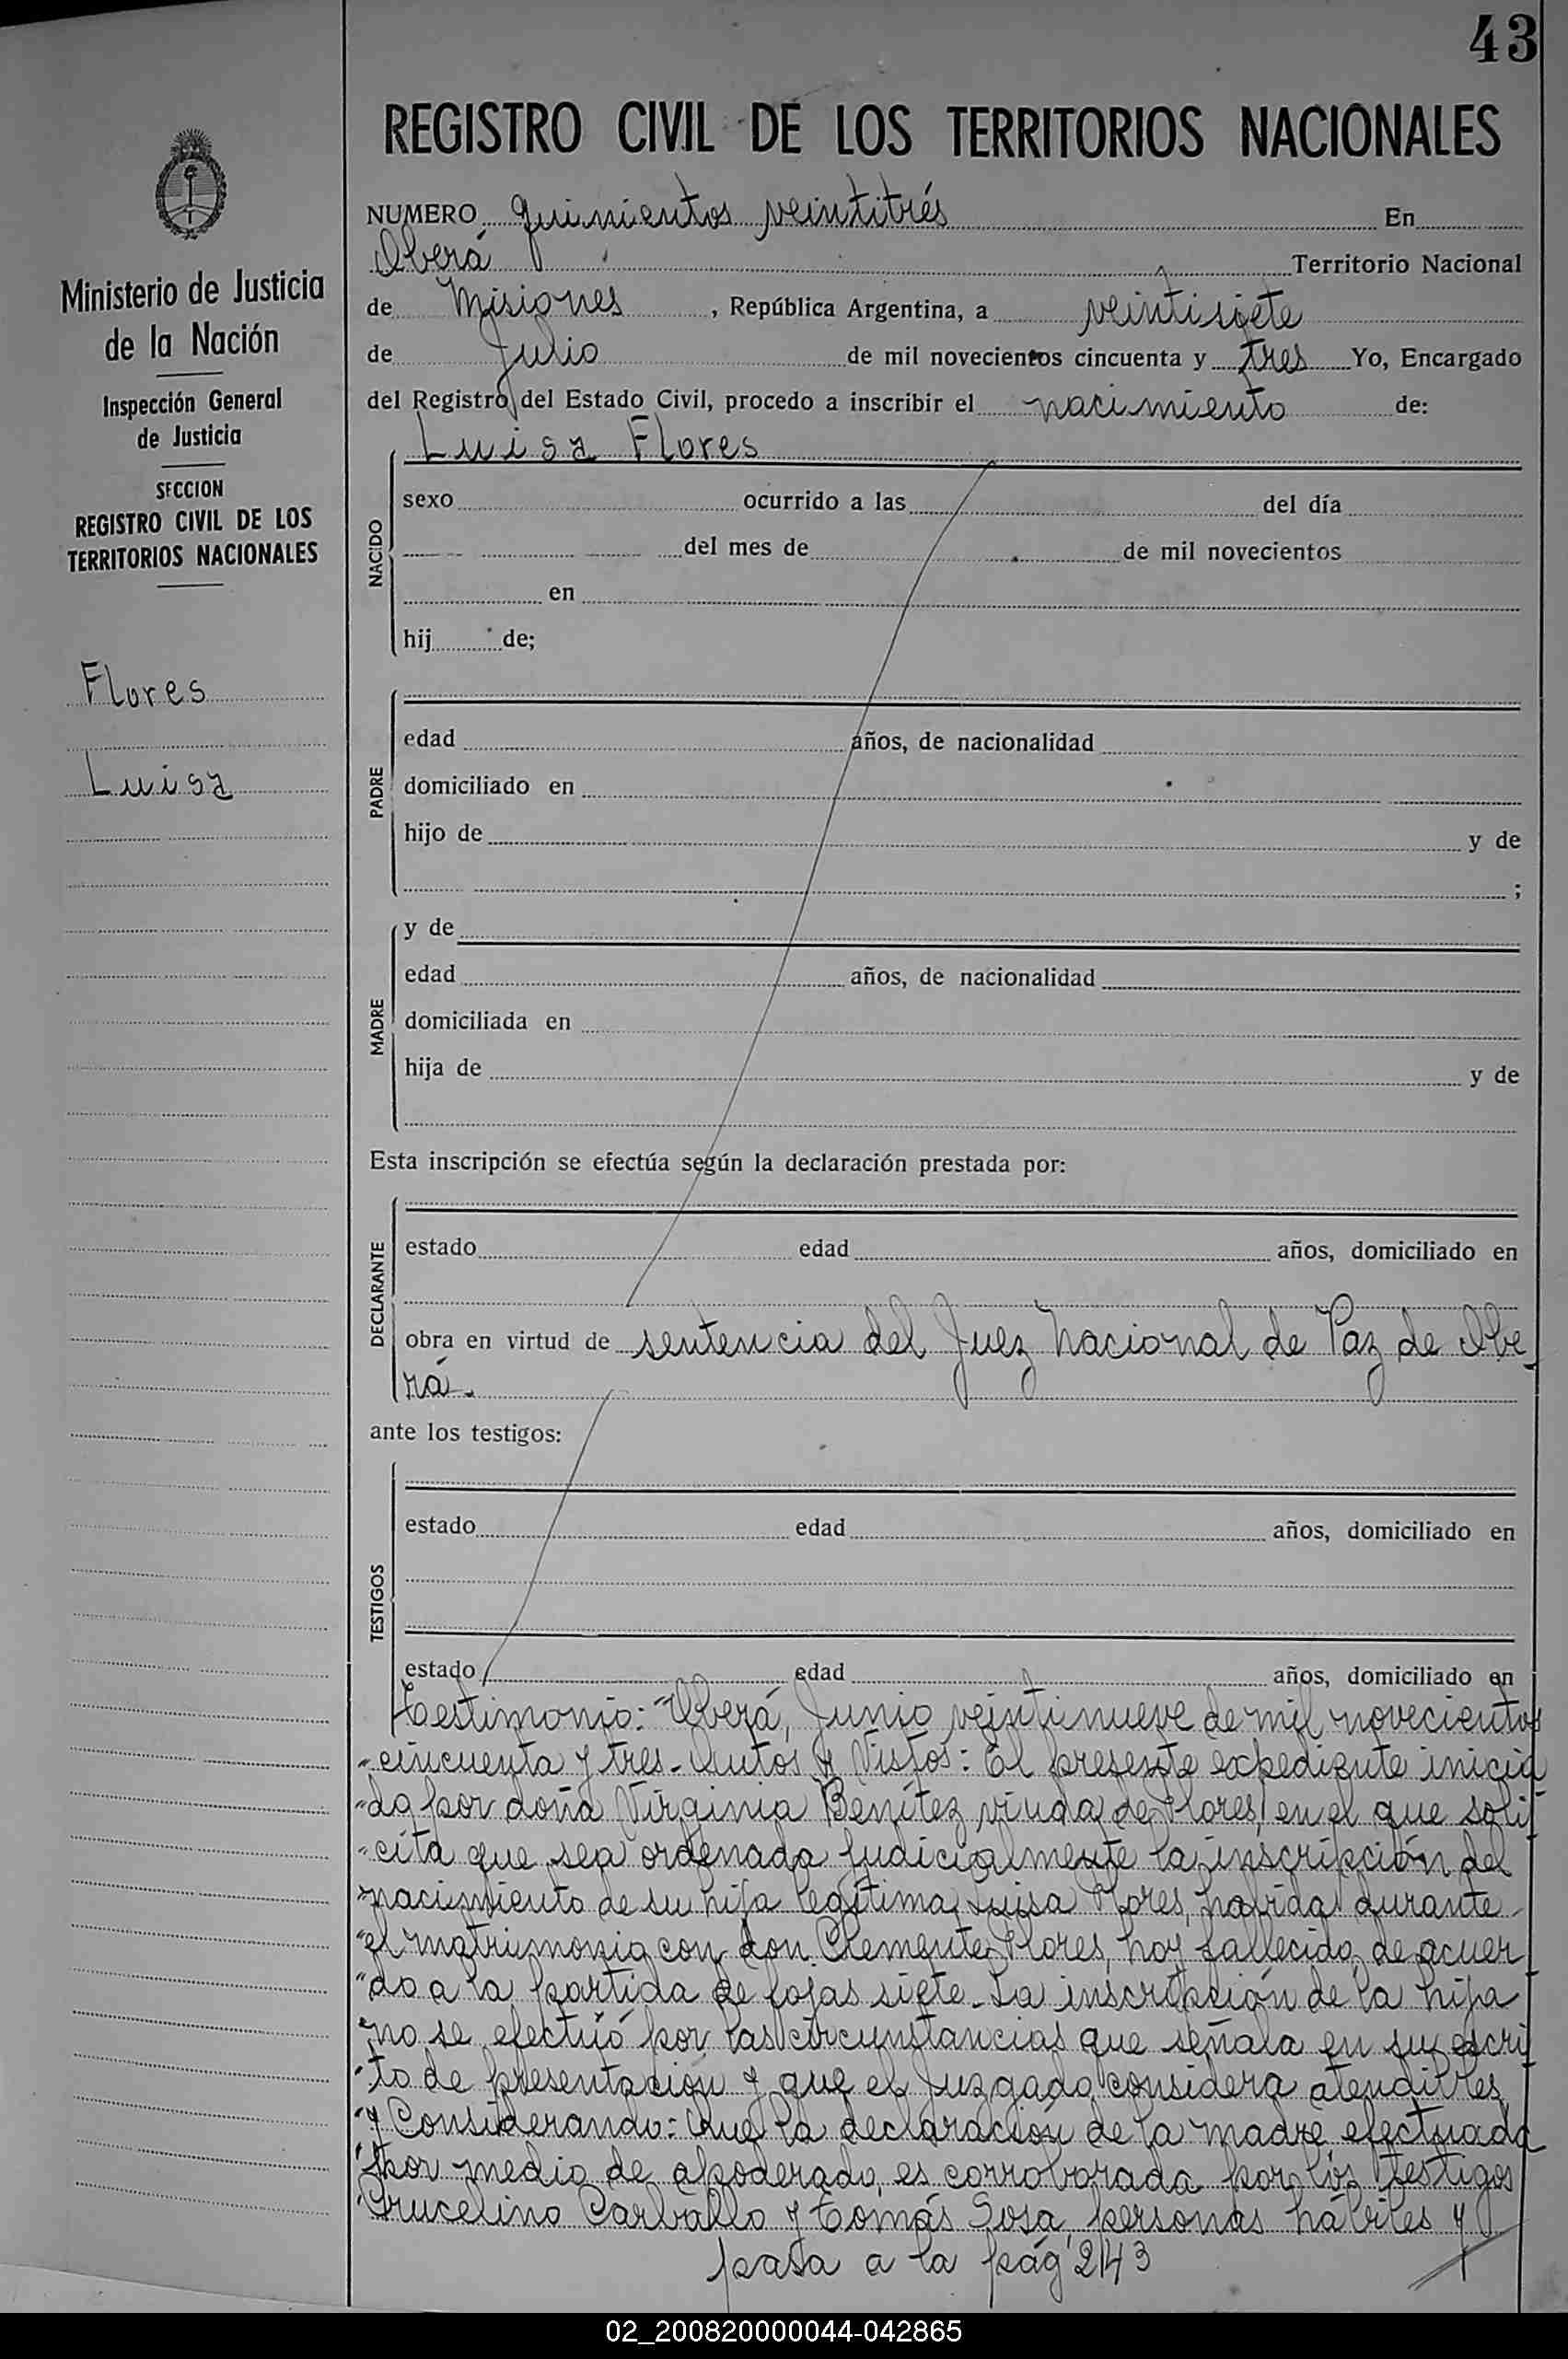 43
REGISTRO CIVIL DE LOS TERRITORIOS NACIONALES
Ministerio de Justicia
de la Nación
Inspección General
de Justicia
SECCION
REGISTRO CIVIL DE LOS
TERRITORIOS NACIONALES
Flores
Luisa
NUMERO quinientos veintitrés En
Oberá Territorio Nacional
de Misiones, República Argentina, a veintisiete
de Julio de mil novecientos cincuenta y tres Yo, Encargado
del Registro del Estado Civil, procedo a inscribir el nacimiento de:
Luisa Flores
NACIDO
sexo ocurrido a las del día
del mes de de mil novecientos
en
hij de;
PADRE
edad años, de nacionalidad
domiciliado en
hijo de y de
;
MADRE
y de
edad años, de nacionalidad
domiciliada en
hija de y de
Esta inscripción se efectúa según la declaración prestada por:
DECLARANTE
estado edad años, domiciliado en
obra en virtud de sentencia del Juez Nacional de Paz de Obe-
rá.
ante los testigos:
TESTIGOS
estado edad años, domiciliado en
estado edad años, domiciliado en
Testimonio: "Oberá, Junio veintinueve de mil novecientos
"cincuenta y tres. Autos y Vistos: El presente expediente inicia
"do por doña Virginia Benítez viuda de Flores, en el que soli
"cita que sea ordenada judicialmente la inscripción del
"nacimiento de su hija legítima Luisa Flores, habida durante
"el matrimonio con don Clemente Flores, hoy fallecido, de acuer
"do a la partida de fojas siete. La inscripción de la hija
"no se efectuó por las circunstancias que señala en su escri
"to de presentación y que el Juzgado considera atendibles,
"y Considerando: Que la declaración de la madre, efectuada
"por medio de apoderado, es corroborada por los testigos
"Crucelino Carballo y Tomás Sosa, personas hábiles y
pasa a la pág 243
02_200820000044-042865